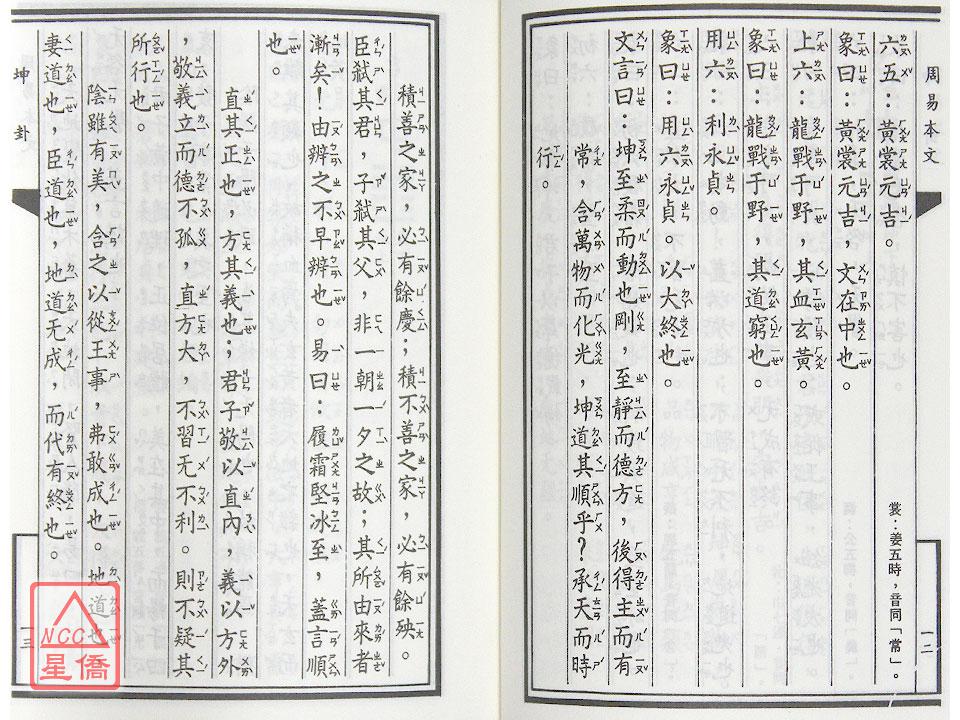 周易本文
六五：黃裳元吉。
裳：姜五時，音同「常」。
象曰：黃裳元吉，文在中也。
上六：龍戰于野，其血玄黃。
象曰：龍戰于野，其道窮也。
用六：利永貞。
象曰：用六永貞。以大終也。
文言曰：坤至柔而動也剛，至靜而德方，後得主而有
常，含萬物而化光，坤道其順乎？承天而時
行。
一二
積善之家，必有餘慶；積不善之家，必有餘殃。
臣弒其君，子弒其父，非一朝一夕之故；其所由來者
漸矣！由辨之不早辨也。易曰：履霜堅冰至，蓋言順
也。
直其正也，方其義也；君子敬以直內，義以方外
，敬義立而德不孤，直方大，不習无不利。則不疑其
所行也。
陰雖有美，含之以從王事，弗敢成也。地道也
妻道也，臣道也，地道无成，而代有終也。
坤卦
一三
NCC
星僑